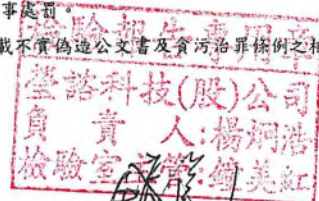 事處罰。
載不實偽造公文書及貪污治罪條例之相
檢驗報告專用章
瑩諮科技(股)公司
負責人:楊炯浩
檢驗室主管:鐘美紅